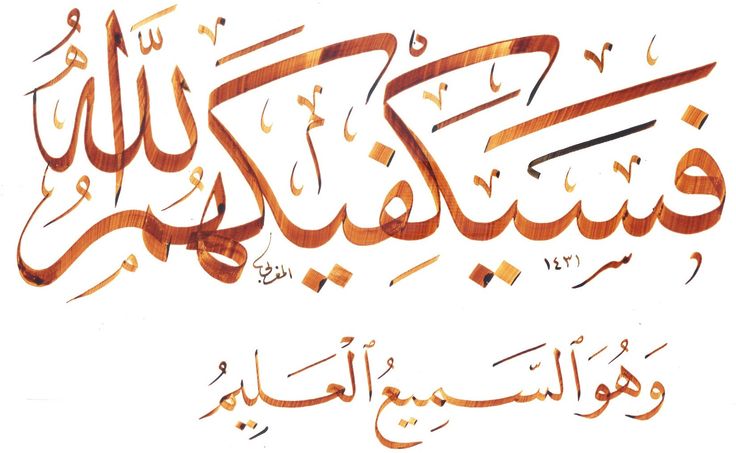 فَسَيَكْفِيكَهُمُ اللَّهُ
المغربي ١٤٣١
وَهُوَ ٱلسَّمِيعُ ٱلْعَلِيمُ